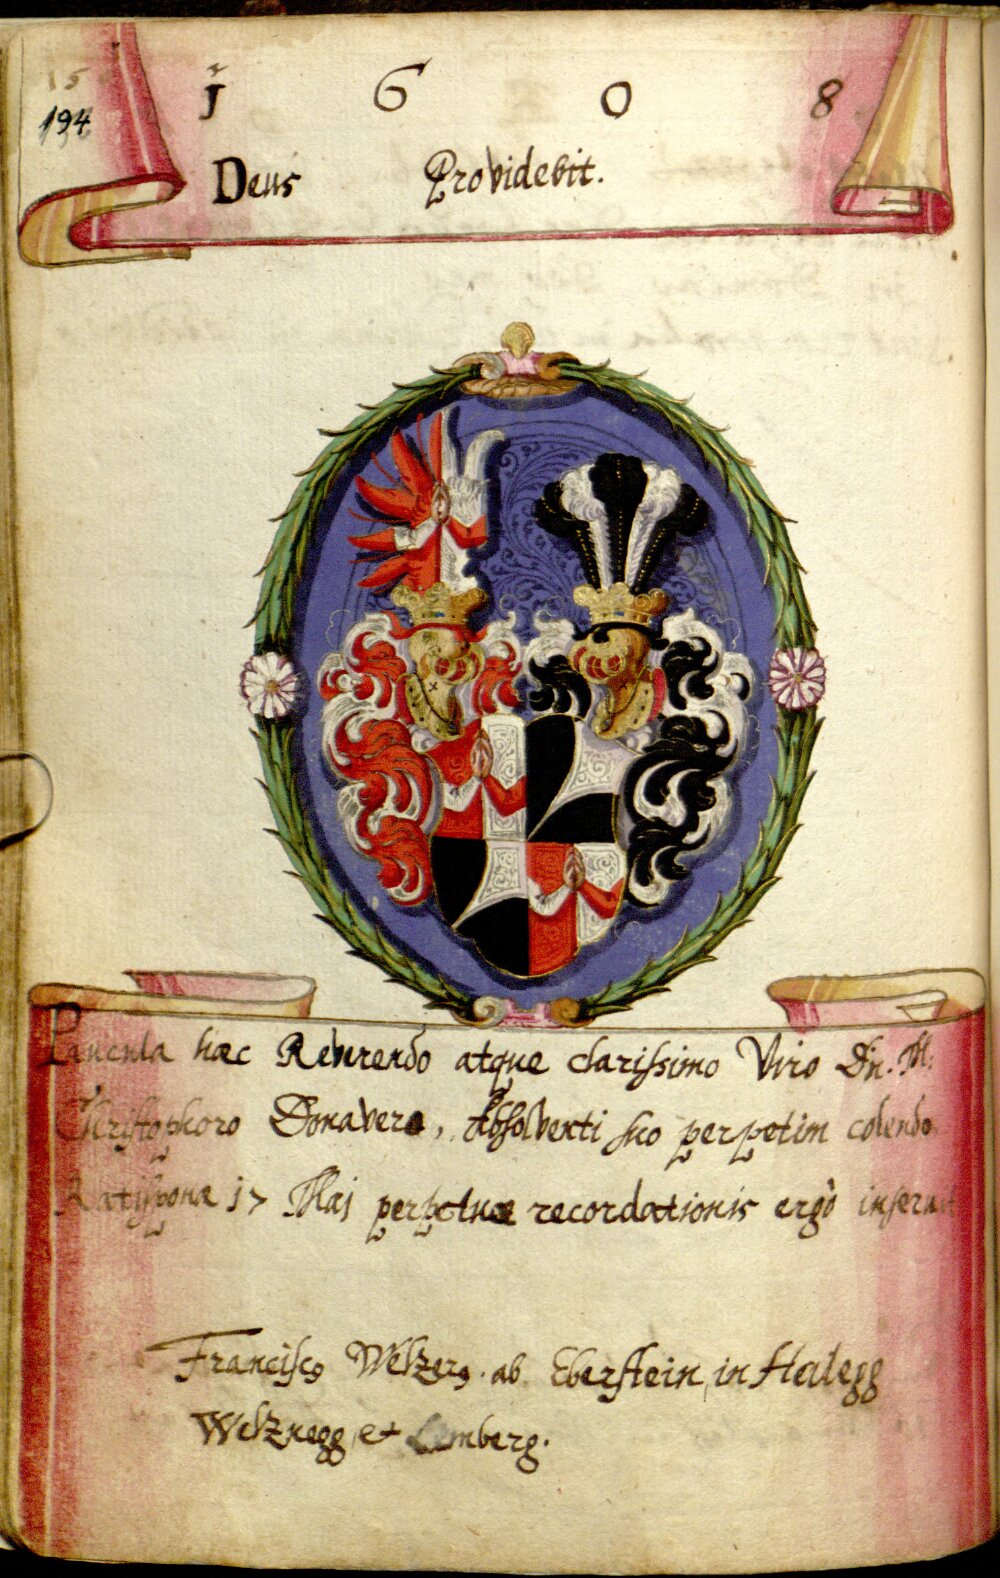 15
194
1 6 0 8
Deus Providebit.
Paucula hæc Reverendo atque clarissimo Viro Dn. M.
Christophoro Donavero, Absolventi suo perpetim colendo
Ratisponæ 17 Maj perpetuæ recordationis ergò inseruit
Franciscus Welzerus ab Eberstein, in Halegg
Welznegg, et Lemberg.